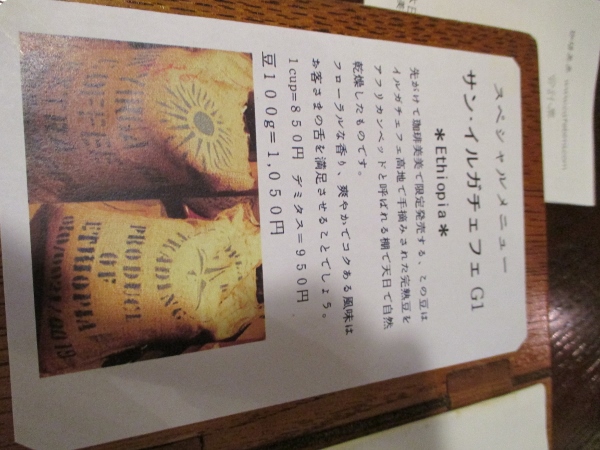 スペシャルメニュー
サン・イルガチェフェ G1
＊Ethiopia＊
先がけて珈琲美美で限定発売する、この豆は
イルガチェフェ高地で手摘みされた完熟豆を
アフリカンベッドと呼ばれる棚で天日で自然
乾燥したものです。
フローラルな香り、爽やかでコクある風味は
お客さまの舌を満足させることでしょう。
1cup=850円 デミタス=950円
豆100g=1,050円
PRODUCT
OF
ETHIOPIA